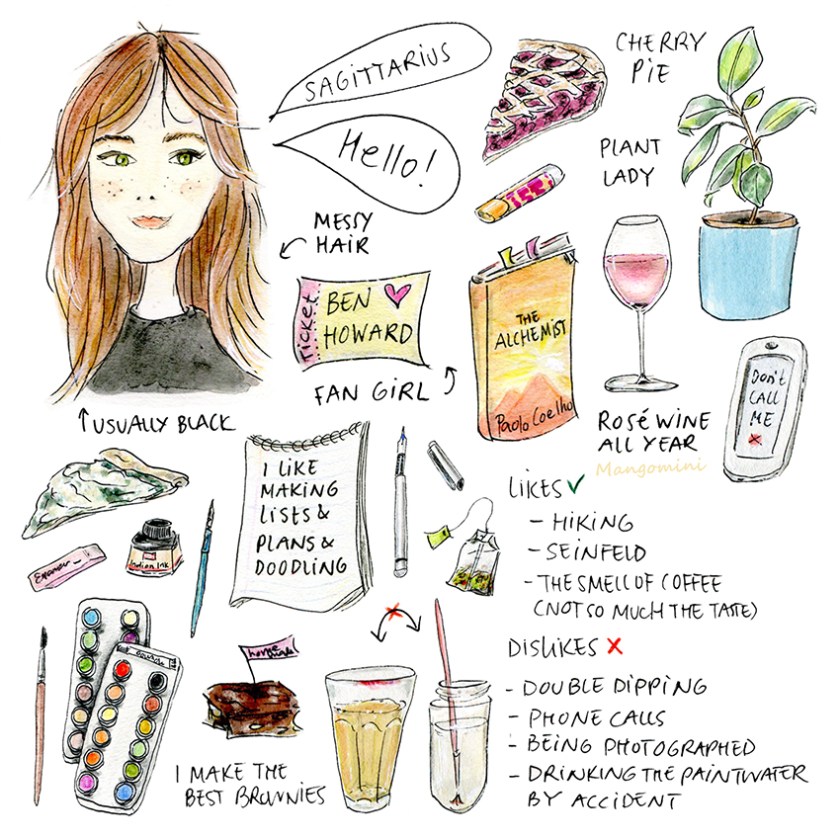 SAGITTARIUS
Hello!
CHERRY
PIE
PLANT
LADY
MESSY
HAIR
Ticket
BEN
HOWARD
FAN GIRL
THE
ALCHEMIST
Paolo Coelho
ROSÉ WINE
ALL YEAR
Mangomini
DON'T
CALL
ME
USUALLY BLACK
I LIKE
MAKING
LISTS &
PLANS &
DOODLING
Indian Ink
LIKES
- HIKING
- SEINFELD
- THE SMELL OF COFFEE
(NOT SO MUCH THE TASTE)
DISLIKES
- DOUBLE DIPPING
- PHONE CALLS
- BEING PHOTOGRAPHED
- DRINKING THE PAINTWATER
BY ACCIDENT
home made
I MAKE THE
BEST BROWNIES